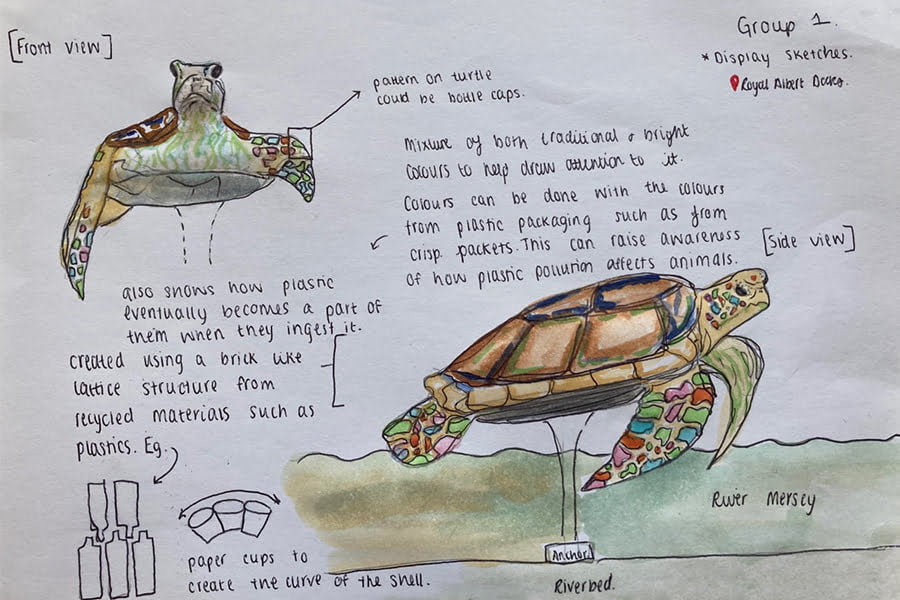 [Front view]
Group 1.
* Display sketches.
Royal Albert Docks.
pattern on turtle
could be bottle caps.
Mixture of both traditional & bright
colours to help draw attention to it.
Colours can be done with the colours
from plastic packaging such as from
crisp packets. This can raise awareness
of how plastic pollution affects animals.
[Side view]
also shows how plastic
eventually becomes a part of
them when they ingest it.
created using a brick like
lattice structure from
recycled materials such as
plastics. Eg.
paper cups to
create the curve of the shell.
River Mersey
Anchor
Riverbed.